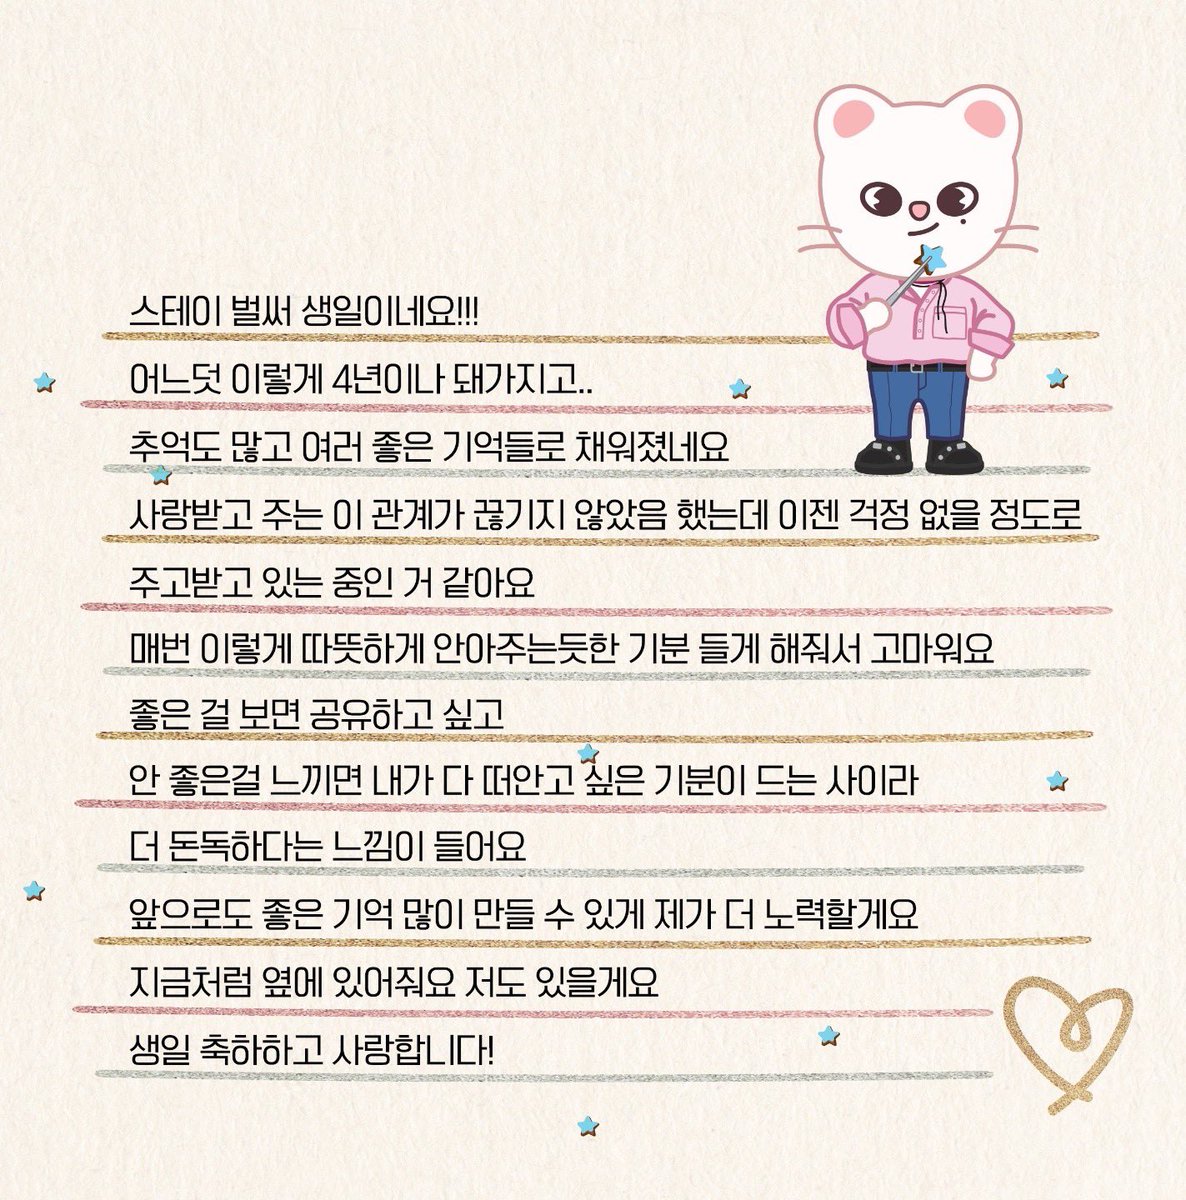 스테이 벌써 생일이네요!!!
어느덧 이렇게 4년이나 돼가지고..
추억도 많고 여러 좋은 기억들로 채워졌네요
사랑받고 주는 이 관계가 끊기지 않았음 했는데 이젠 걱정 없을 정도로
주고받고 있는 중인 거 같아요
매번 이렇게 따뜻하게 안아주는듯한 기분 들게 해줘서 고마워요
좋은 걸 보면 공유하고 싶고
안 좋은걸 느끼면 내가 다 떠안고 싶은 기분이 드는 사이라
더 돈독하다는 느낌이 들어요
앞으로도 좋은 기억 많이 만들 수 있게 제가 더 노력할게요
지금처럼 옆에 있어줘요 저도 있을게요
생일 축하하고 사랑합니다!